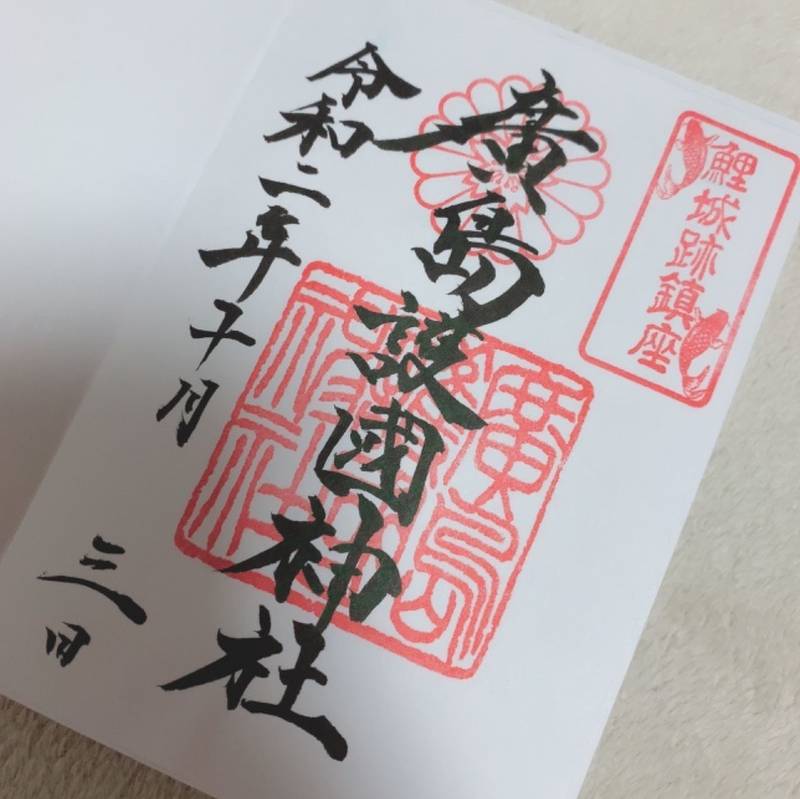 鯉城跡鎮座
廣島護國神社
令和二年十月三日
廣島護國神社